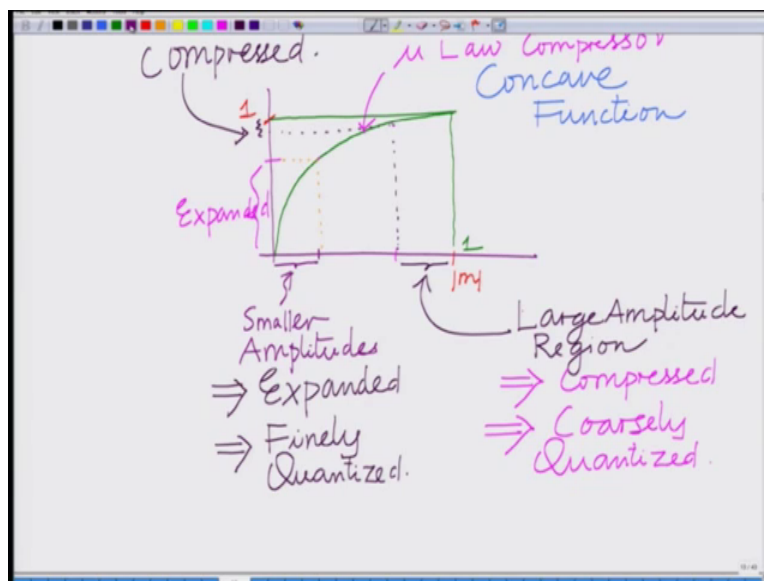 Compressed.
μ Law Compressor
Concave
Function
1
Expanded
1
|m|
Smaller
Amplitudes
⇒ Expanded
⇒ Finely
Quantized.
Large Amplitude
Region
⇒ Compressed
⇒ Coarsely
Quantized.